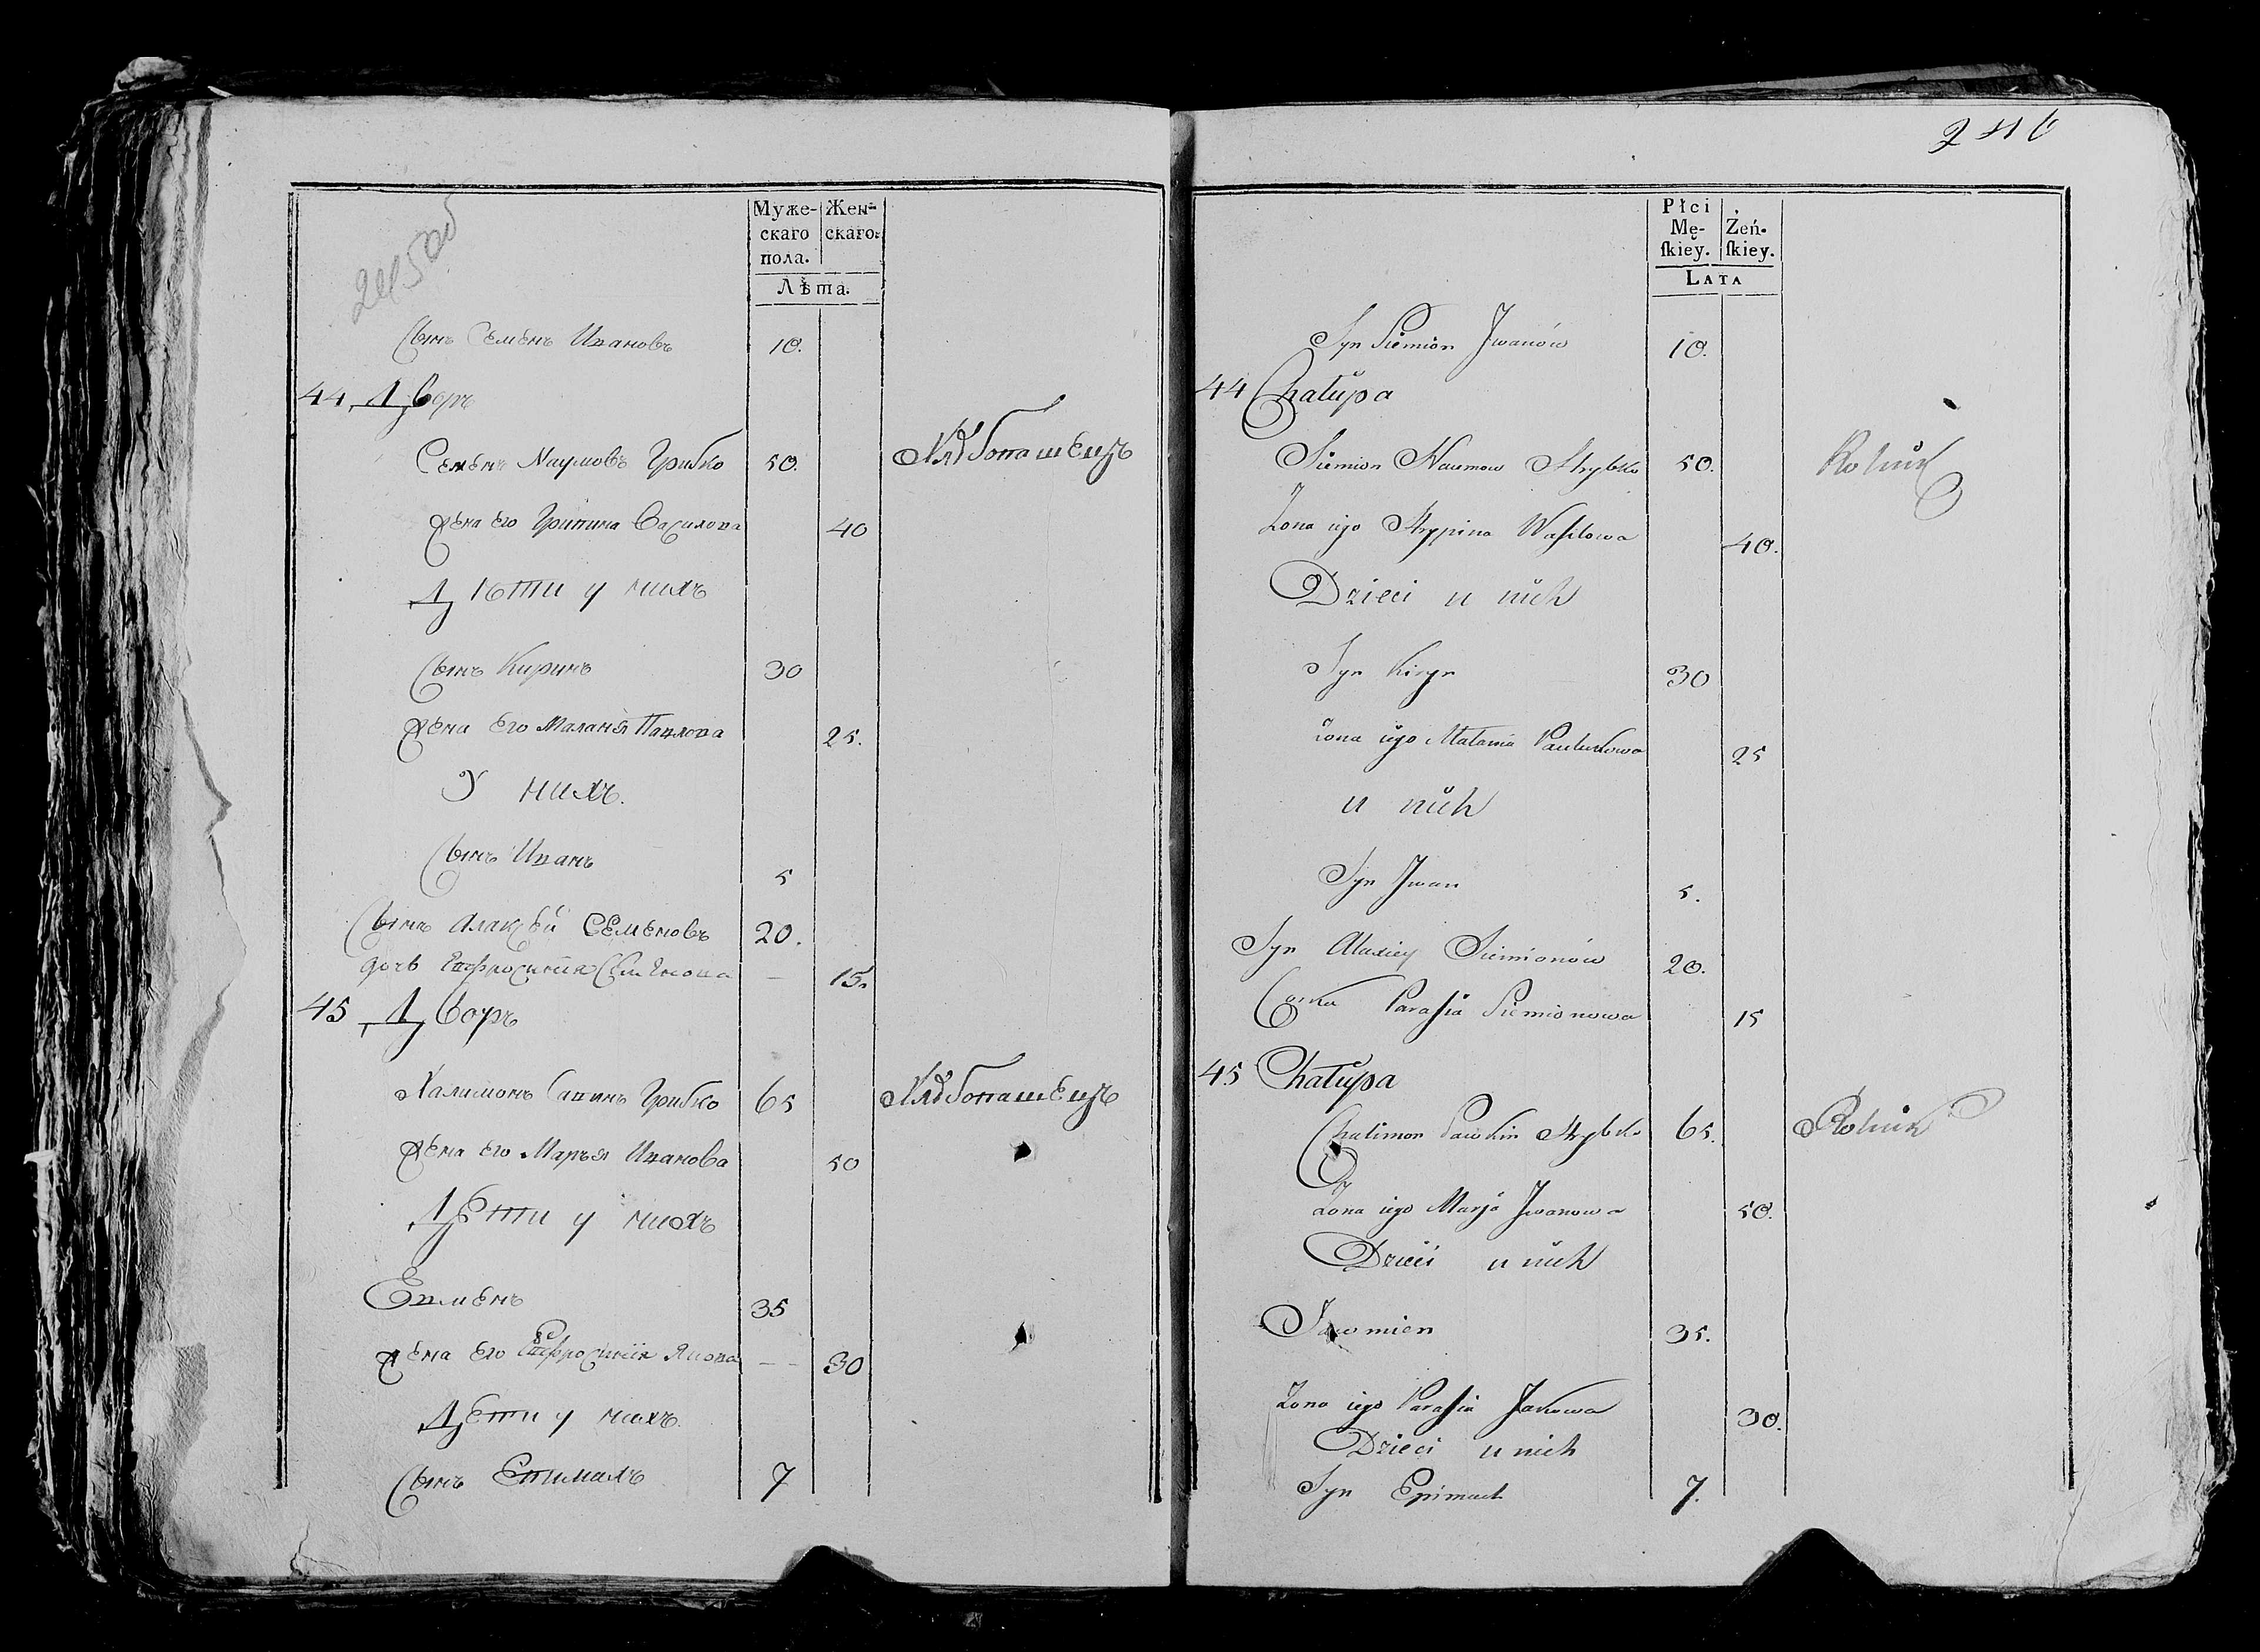 245 об
Муже-
скаго
пола.
Жен-
скаго.
Лѣта.
Сынъ Семенъ Ивановъ 10.
44 Дворъ
Семенъ Наумовъ Грибко 50. Хлѣбопашецъ
Жена его Грипина Василова 40
Дѣти у нихъ
Сынъ Киринъ 30
Жена его Маланья Павлова 25.
У нихъ.
Сынъ Иванъ 5
Сынъ Алаксѣй Семеновъ 20.
дочь Семенова — 15.
45 Дворъ
Халимонъ Грибко 65 Хлѣбопашецъ
Жена его Марья Иванова 50
Дѣти у нихъ
Евменъ 35
Жена его — 30
Дети у нихъ.
Сынъ Епимахъ 7
246
Płci
Mę-
ſkiey.
Żeń-
ſkiey.
Lata
Syn Siemion Jwanów 10.
44 Chałupa
Siemion Naumow Hrybko 50. Rolnik
Żona iego Hrypina Wasilowa 40.
Dzieci u nich
Syn Kiryn 30
Żona iego Małania Pawlukowa 25
u nich
Syn Jwan 5.
Syn Alaxiey Siemionów 20.
Corka Parasia Siemionowa 15
45 Chałupa
Chalimon Sawkin Hrybko 65. Rolnik
Żona iego Marja Jwanowa 50.
Dzieci u nich
Jawmien 35.
Żona iego Parasia Jakowa 30.
Dzieci u nich
Syn Epimach 7.